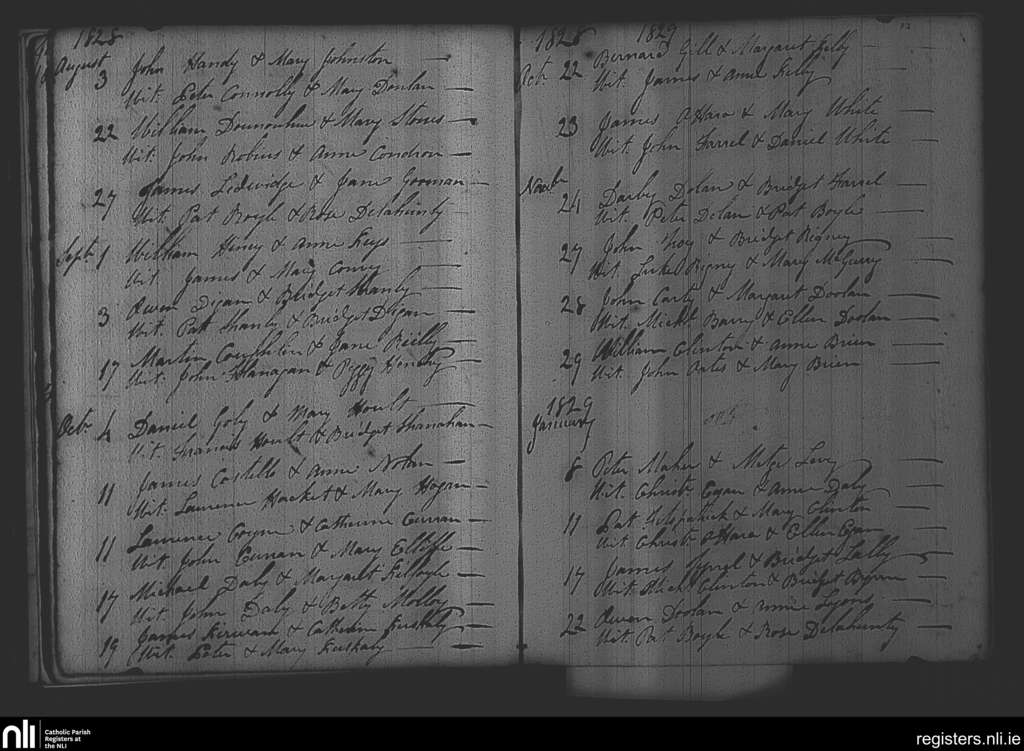 1828
August 3 John Handy & Mary Johnston
Wit. Peter Connolly & Mary Donlan
22 William & Mary
Wit. John Robins & Anne Condron
27 James Ledwidge & Jane Gorman
Wit. Pat Boyle & Rose Delahunty
Sept. 1 William Heney & Anne Keys
Wit. James & Mary Conry
3 Owen Digan & Bridget Shanly
Wit. Patt Shanly & Bridget Digan
17 Martin Coughlin & Jane Reilly
Wit. John Flanagan & Peggy
Octbr. 4 Daniel & Mary Hoult
Wit. Hoult & Bridget Shanahan
11 James Costello & Anne Nolan
Wit. Laurence Hacket & Mary Hogan
11 Laurence Coyne & Catherine Curran
Wit. John Curran & Mary
17 Michael Daly & Margaret Kilfoyle
Wit. John Daly & Betty Molloy
19 James Kirwan & Catherine
Wit. Peter & Mary
1828 1829
Oct. 22 Bernard Gill & Margaret Kelly
Wit. James & Anne Kelly
23 James OHara & Mary White
Wit. John Farrel & Daniel White
Novbr 24 Darby Dolan & Bridget Farrel
Wit. Peter Dolan & Pat Boyle
27 John Troy & Bridget Rigney
Wit. Luke Rigney & Mary McGurry
28 John Carty & Margaret Doolan
Wit. Michl. Barry & Ellen Doolan
29 William Clinton & Anne Brien
Wit. John Oates & Mary Brien
1829
January
8 Peter Maher & Levy
Wit. Christr. Egan & Anne Daly
11 Pat Kilpatrick & Mary Clinton
Wit. Christr. OHara & Ellen Egan
17 James & Bridget Lally
Wit. Mich. Clinton & Bridget Byrne
22 Owen Doolan & Lyons
Wit. Pat Boyle & Rose Delahunty
nli
Catholic Parish
Registers at
the NLI
registers.nli.ie